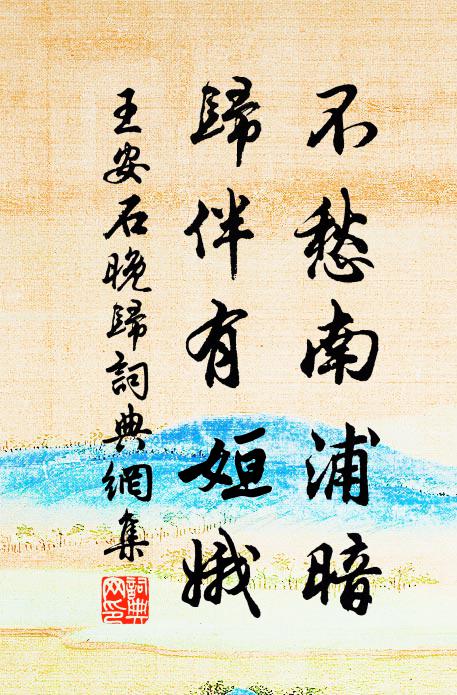 不愁南浦暗
歸伴有姮娥
王安石晚歸詞典網集
詞典網印